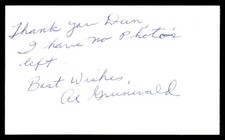 Thank you Dan,
I have no Photo's
left
Best Wishes,
Al Grunwald